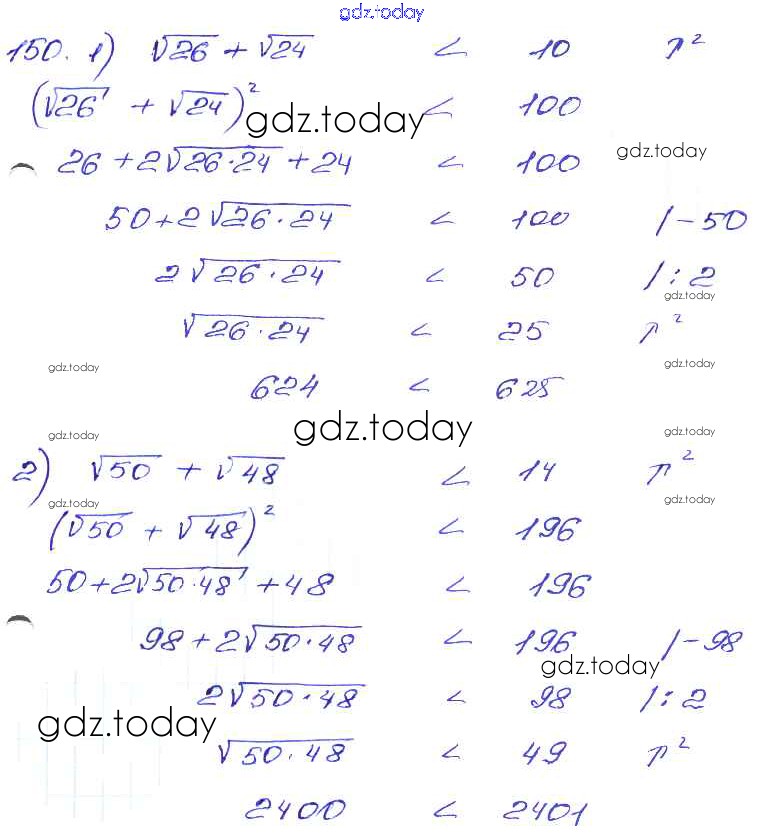 gdz.today
150. 1) √26 + √24 < 10 ↑²
(√26 + √24)² < 100
gdz.today
gdz.today
26 + 2√26·24 + 24 < 100
50 + 2√26·24 < 100 /-50
2√26·24 < 50 /:2
gdz.today
√26·24 < 25 ↑²
gdz.today gdz.today
624 < 625
gdz.today
gdz.today gdz.today
2) √50 + √48 < 14 ↑²
gdz.today gdz.today
(√50 + √48)² < 196
50 + 2√50·48 + 48 < 196
98 + 2√50·48 < 196 /-98
gdz.today
2√50·48 < 98 /:2
gdz.today
√50·48 < 49 ↑²
2400 < 2401